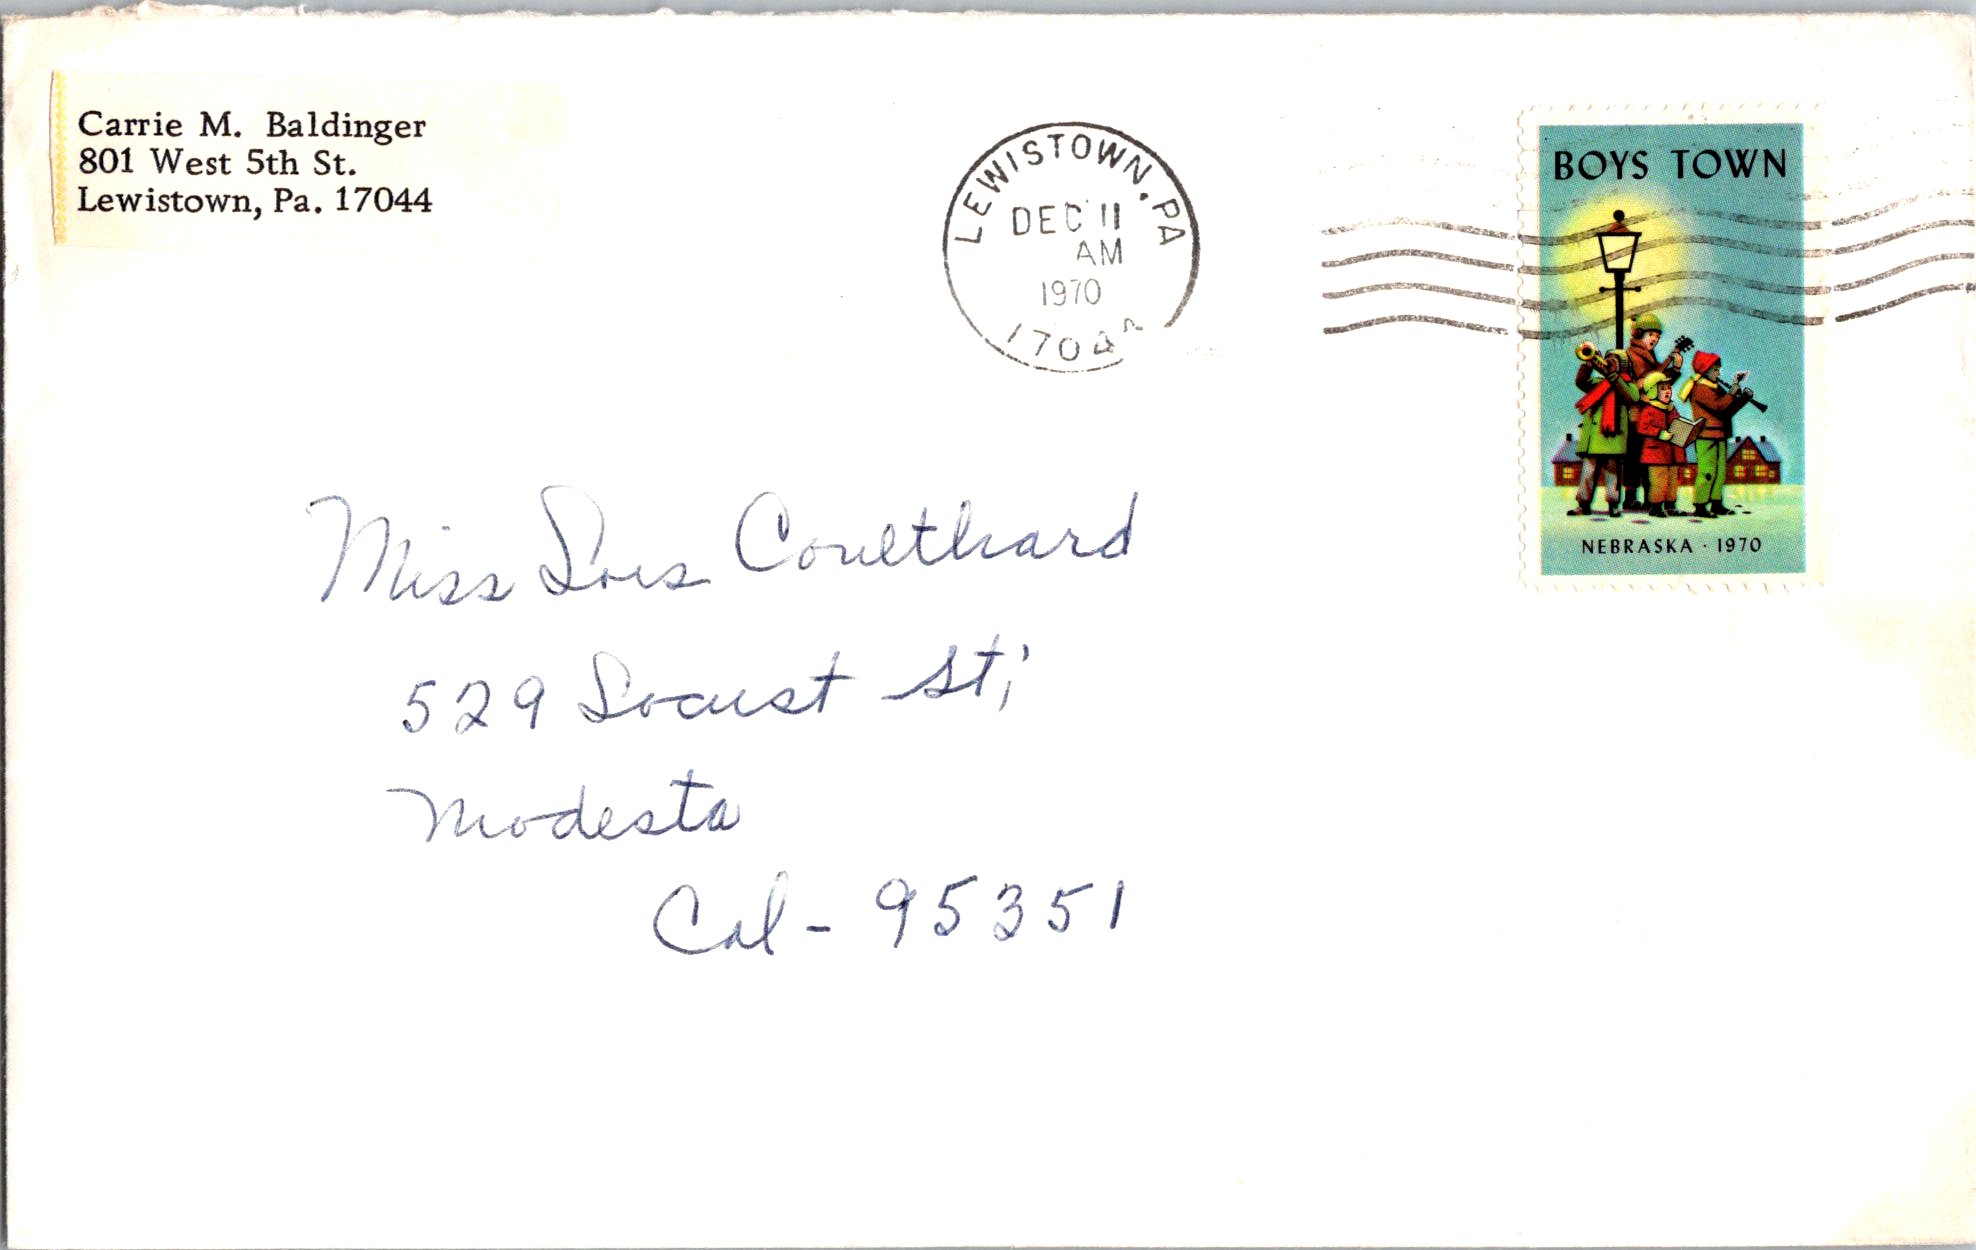 Carrie M. Baldinger
801 West 5th St.
Lewistown, Pa. 17044
LEWISTOWN, PA
DEC 11
AM
1970
17044
BOYS TOWN
NEBRASKA · 1970
Miss Lois Coulthard
529 Locust St;
Modesta
Cal - 95351